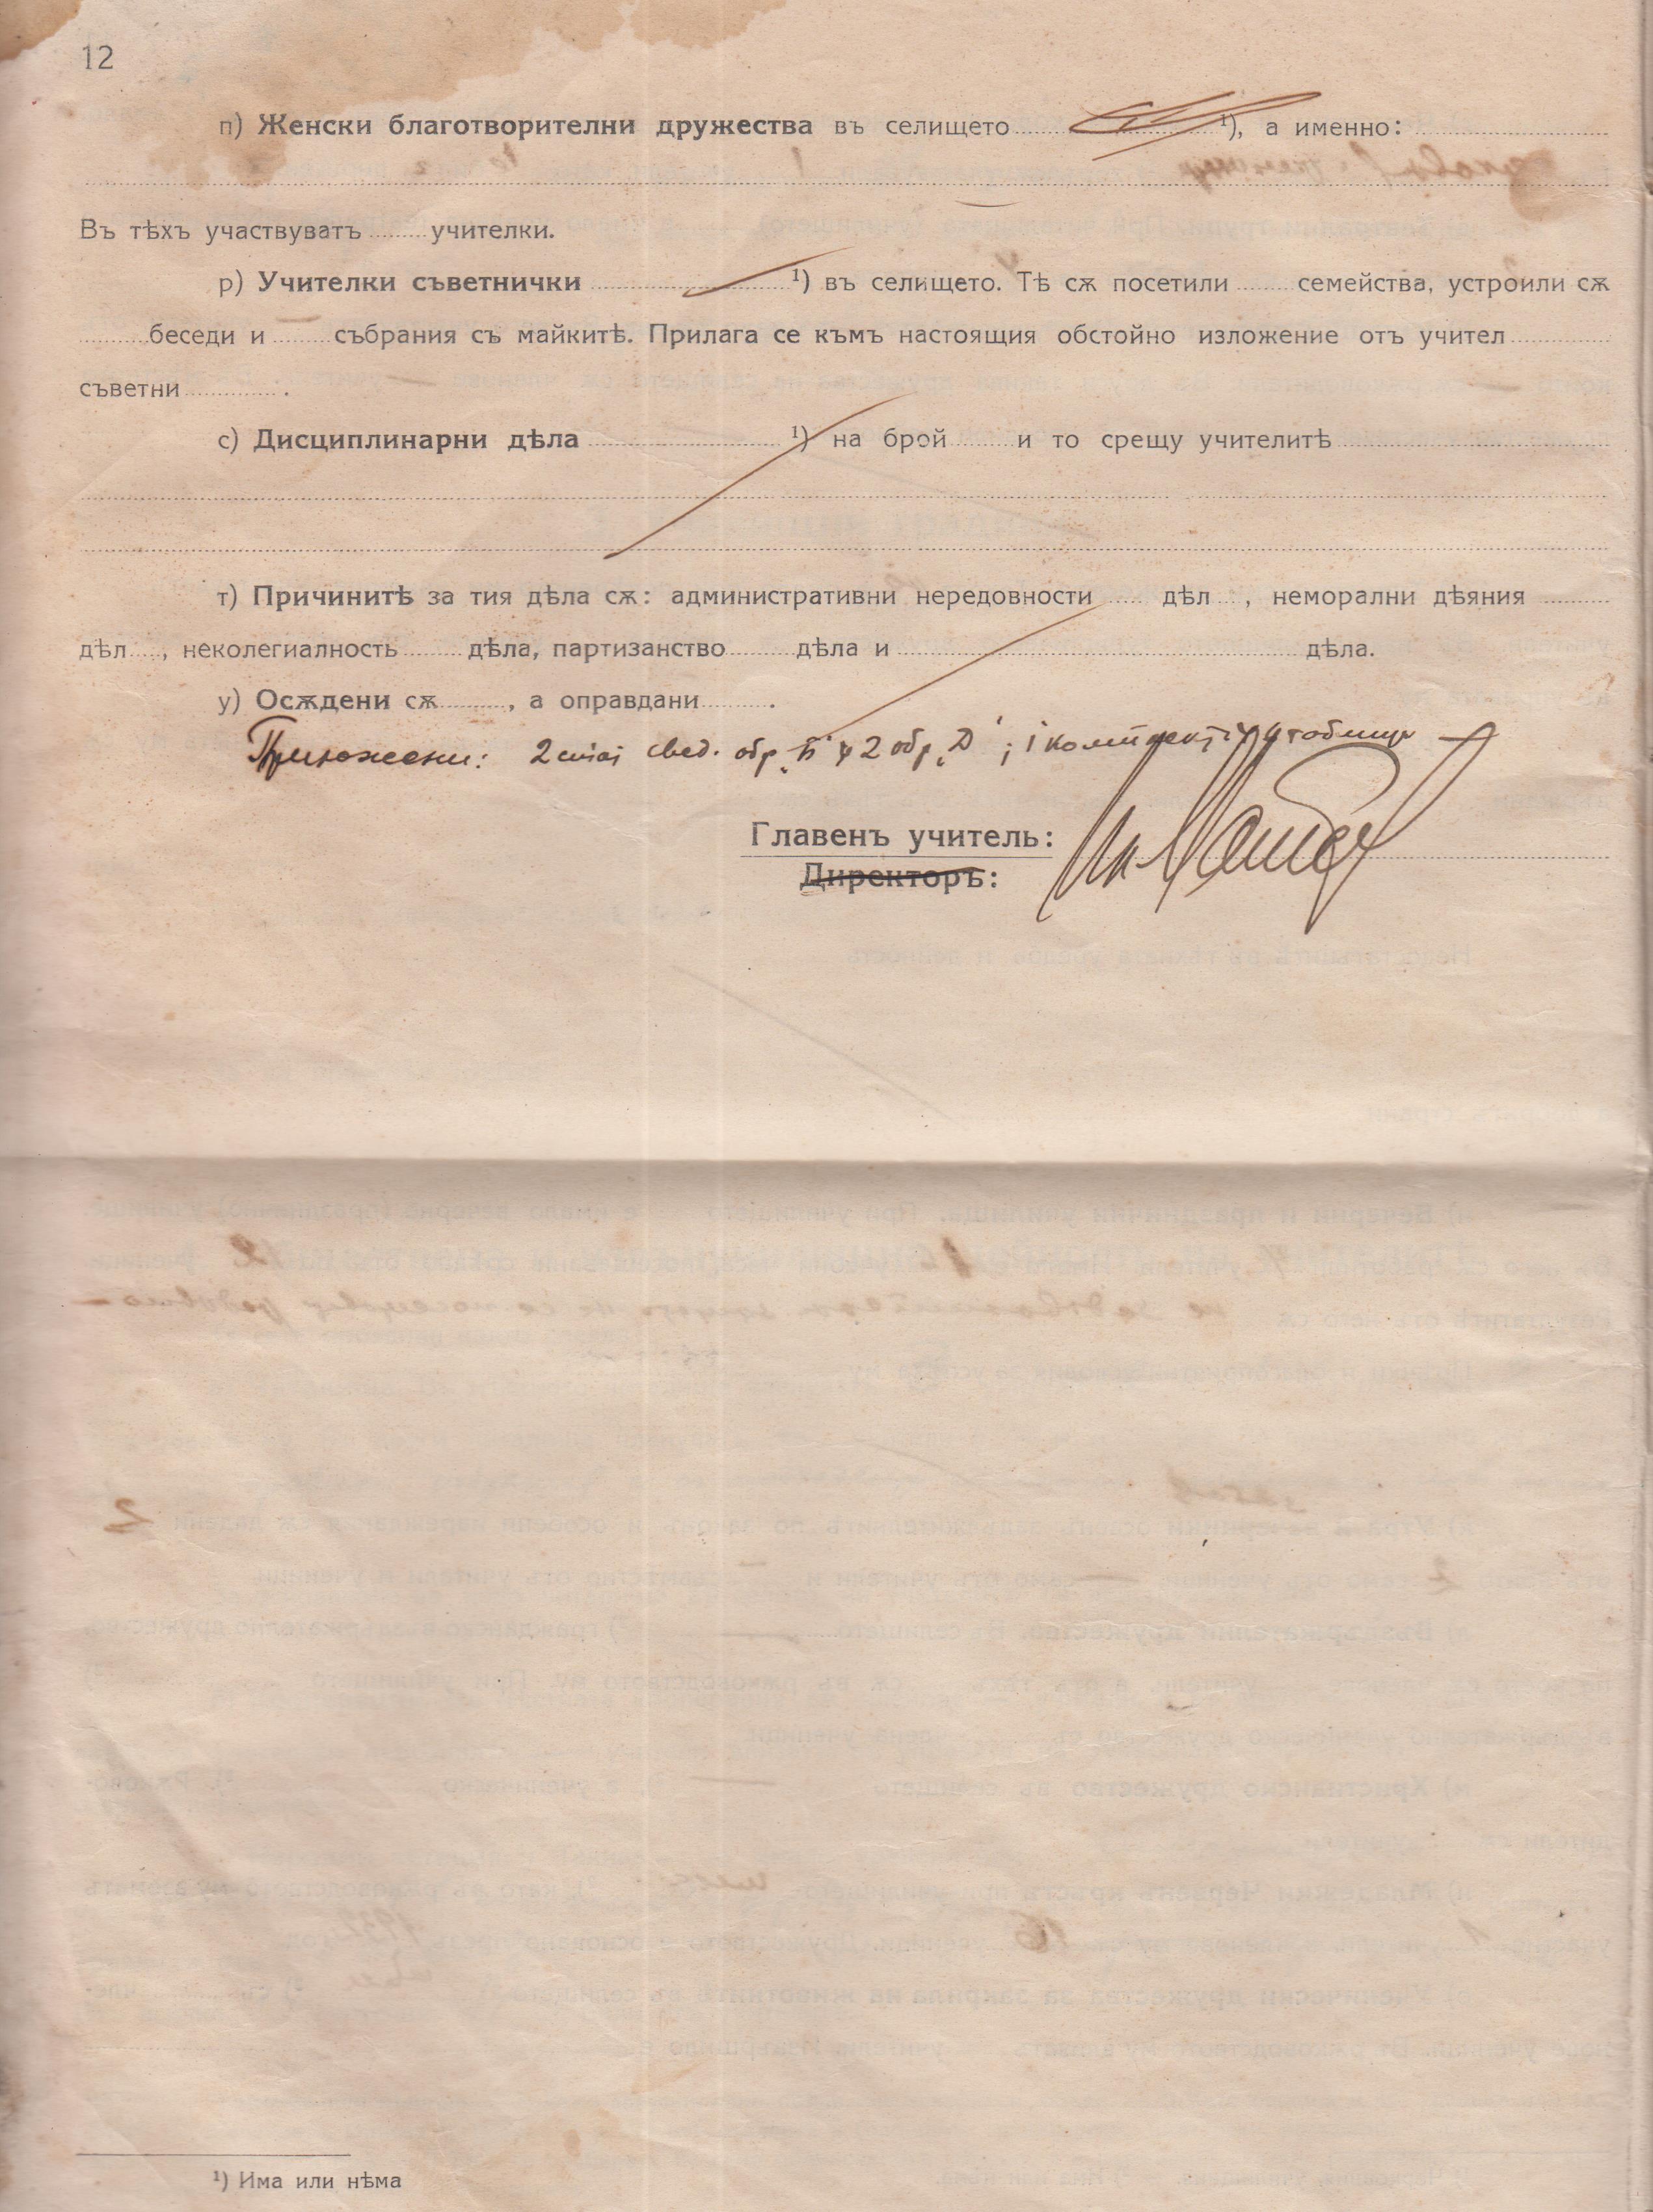 12
п) Женски благотворителни дружества въ селището ........ ¹), а именно: ........
Въ тѣхъ участвуватъ ........ учителки.
р) Учителки съветнички ........ ¹) въ селището. Тѣ сѫ посетили ........ семейства, устроили сѫ
........ беседи и ........ събрания съ майкитѣ. Прилага се къмъ настоящия обстойно изложение отъ учител ........
съветни ........ .
с) Дисциплинарни дѣла ........ ¹) на брой ........ и то срещу учителитѣ ........
т) Причинитѣ за тия дѣла сѫ: административни нередовности ..... дѣл ...., неморални дѣяния ........
дѣл ...., неколегиалность ........ дѣла, партизанство ........ дѣла и ........ дѣла.
у) Осѫдени сѫ ........, а оправдани ........ .
Приложени: 2 свед. обр. „Б“ и 2 обр. „Д“; 1 комплектъ таблици
Главенъ учитель:
Директоръ:
¹) Има или нѣма